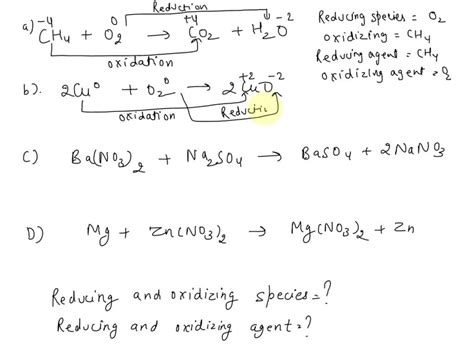 Reduction
a) -4 CH4 + 0 O2 → +4 CO2 + H2O -2
oxidation
Reducing species = O2
oxidizing = CH4
Reducing agent = CH4
oxidizing agent = O2
b). 2Cu0 + O2 0 → 2 +2 CuO -2
oxidation
Reductio
C) Ba(NO3)2 + Na2SO4 → BaSO4 + 2NaNO3
D) Mg + Zn(NO3)2 → Mg(NO3)2 + Zn
Reducing and oxidizing species=?
Reducing and oxidizing agent=?